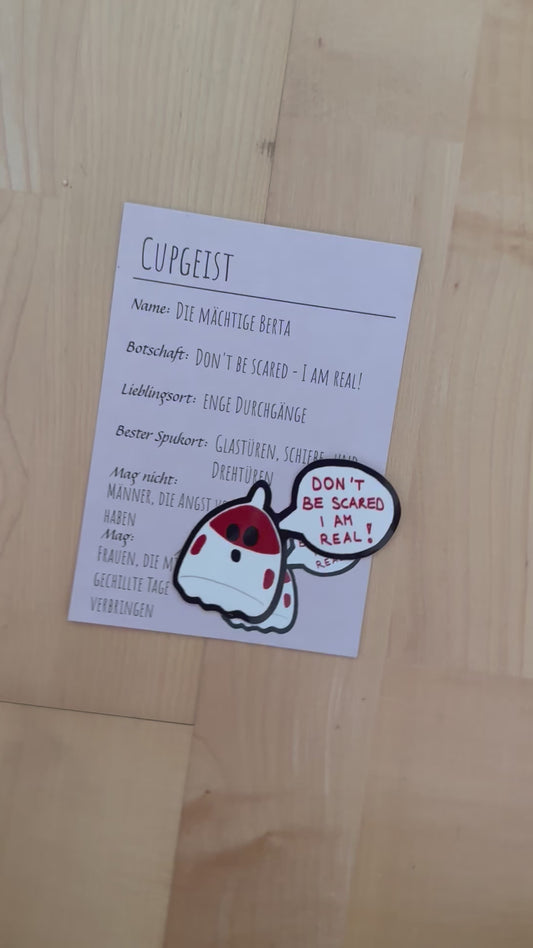 CUPGEIST
Name: DIE MÄCHTIGE BERTA
Botschaft: DON'T BE SCARED - I AM REAL!
Lieblingsort: ENGE DURCHGÄNGE
Bester Spukort: GLASTÜREN, SCHIEBE- UND
DREHTÜREN
Mag nicht:
MÄNNER, DIE ANGST
HABEN
Mag:
FRAUEN, DIE
GECHILLTE TAGE
VERBRINGEN
DON'T
BE SCARED
I AM
REAL!
REA